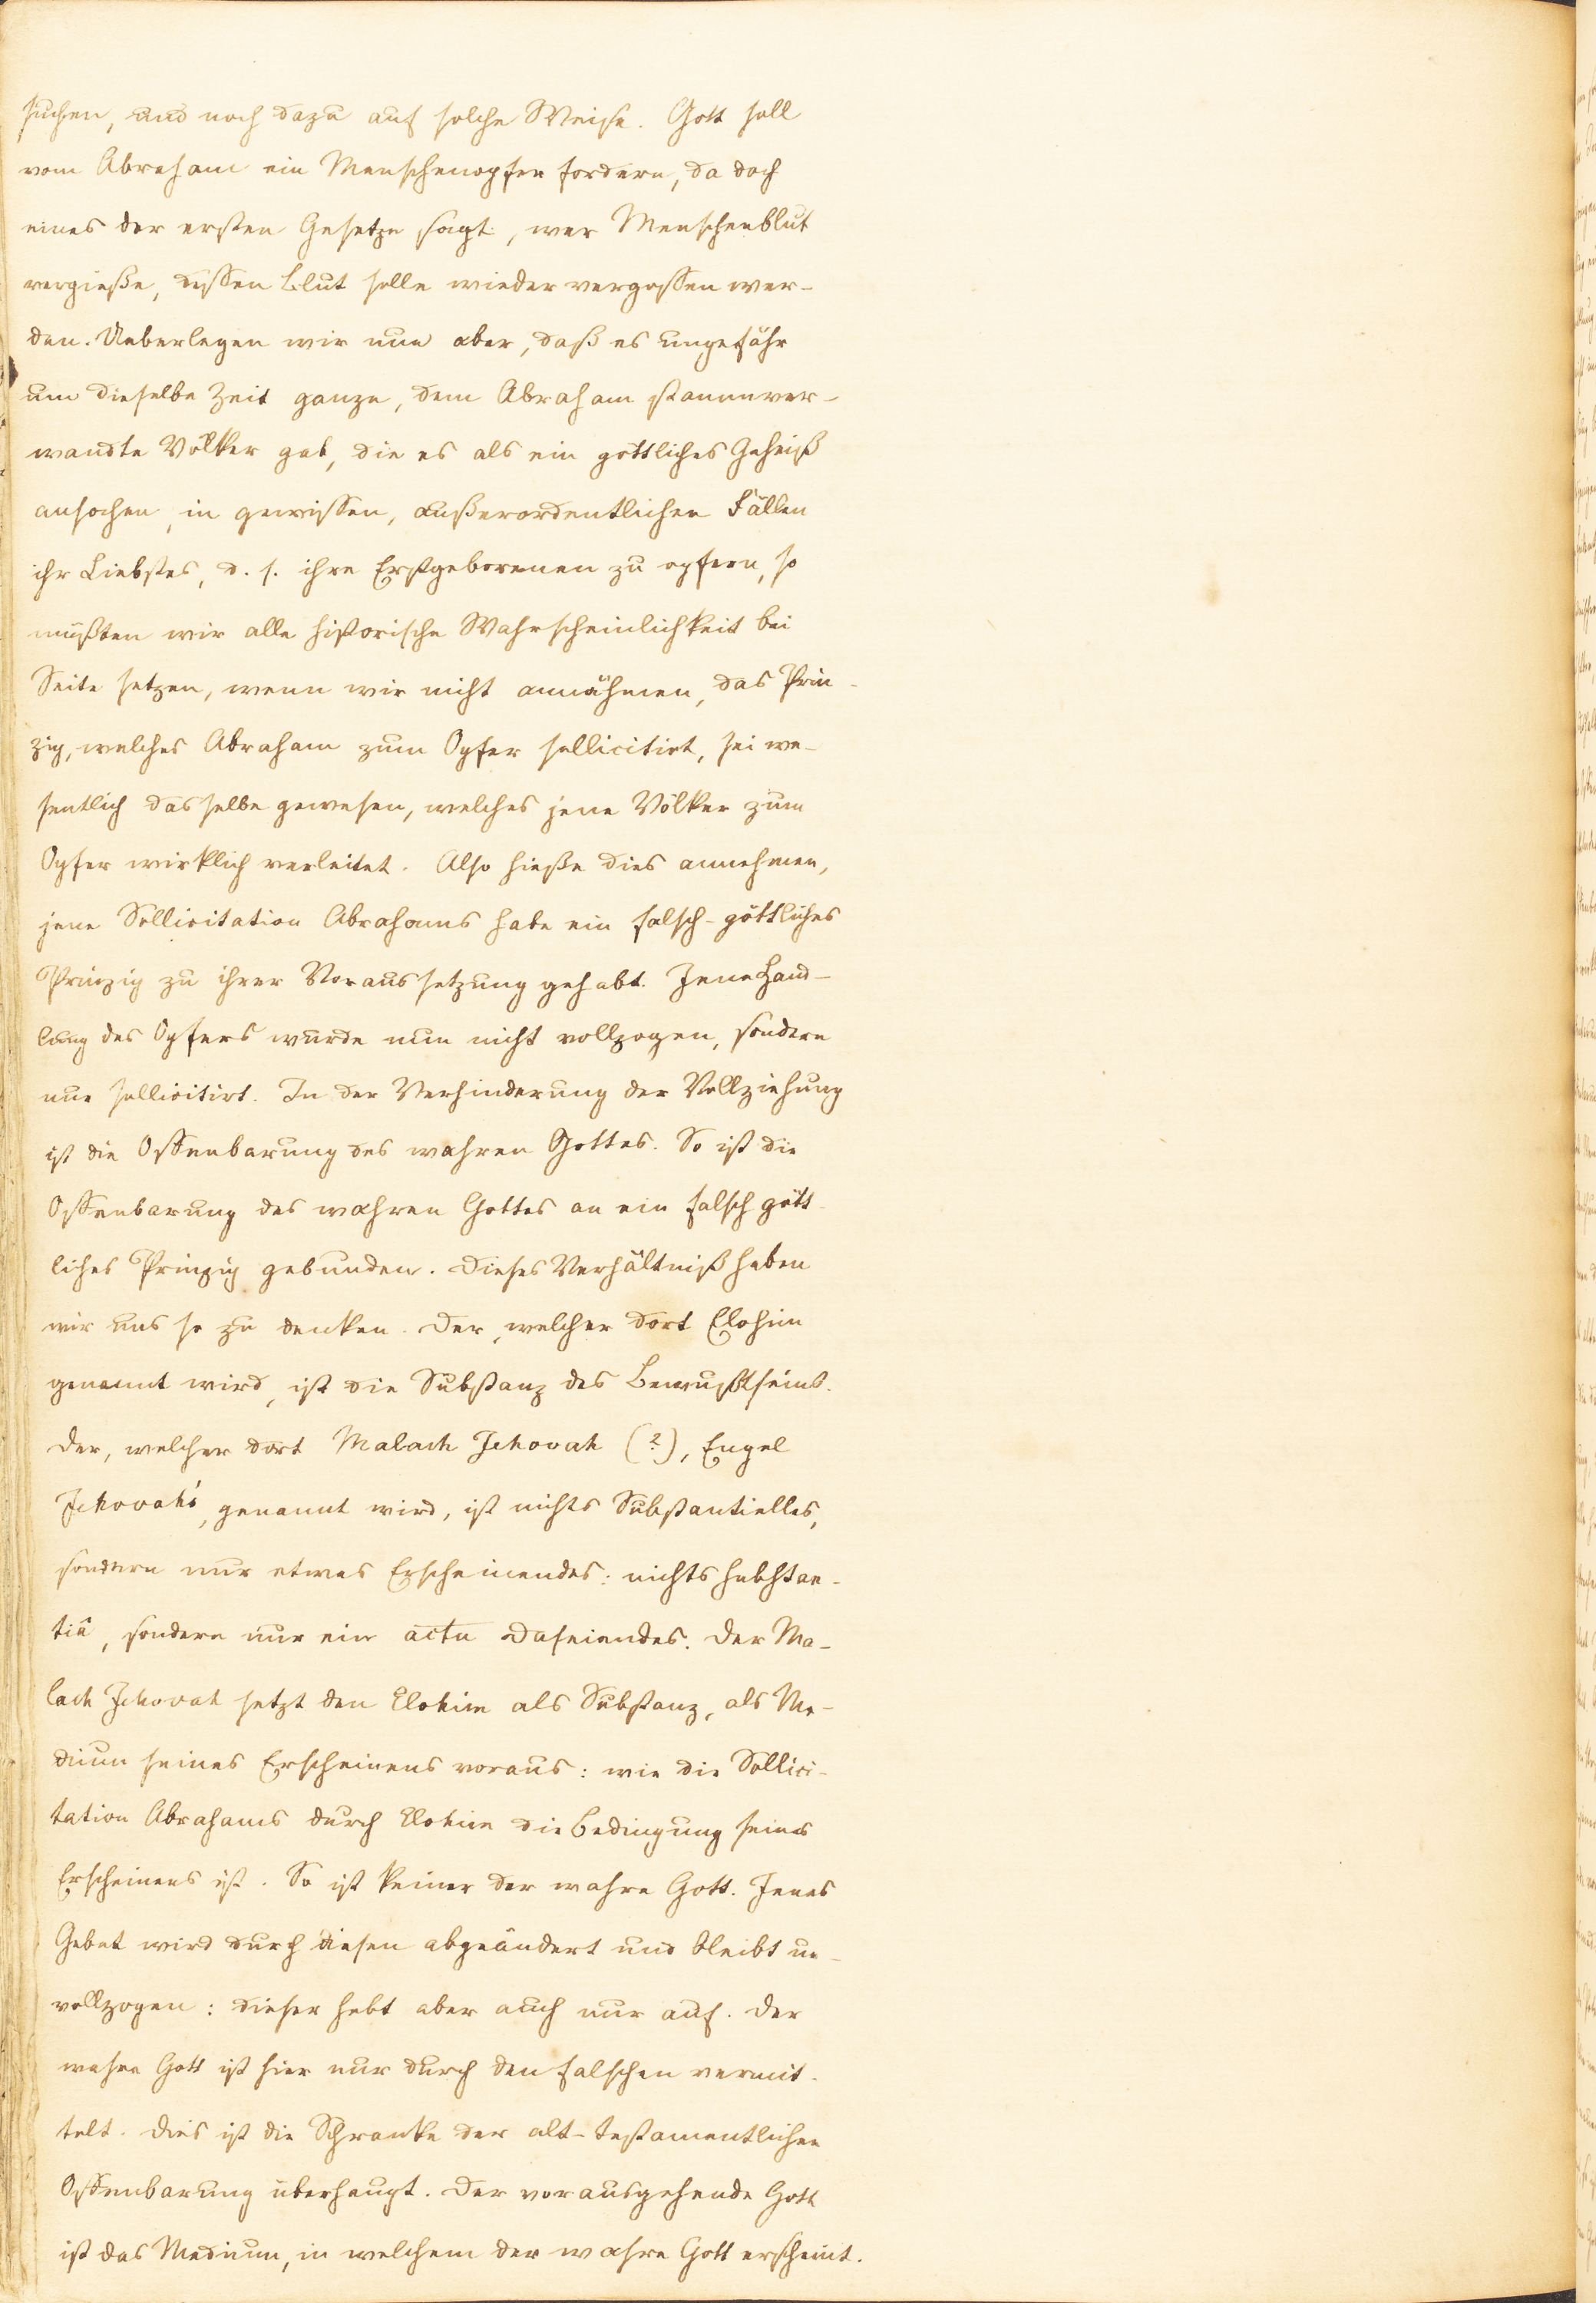 suchen, und noch dazu auf solche Weise. Gott soll
vom Abraham ein Menschenopfer fordern, da doch
eines der ersten Gesetze sagt, wer Menschenblut
vergieße, dessen Blut solle wieder vergossen wer-
den. Ueberlegen wir nun aber, daß es ungefähr
um dieselbe Zeit ganze, dem Abraham stammver-
wandte Völker gab, die es als ein göttliches Geheiß
ansahen, in gewissen, außerordentlichen Fällen
ihr Liebstes, d. h. ihre Erstgeborenen zu opfern, so
müßten wir alle historische Wahrscheinlichkeit bei
Seite setzen, wenn wir nicht annähmen, das Prin-
zip, welches Abraham zum Opfer sollicitirt, sei we-
sentlich dasselbe gewesen, welches jene Völker zum
Opfer wirklich verleitet. Also hieße dies annehmen,
jene Sollicitation Abrahams habe ein falsch-göttliches
Prinzip zu ihrer Voraussetzung gehabt. Jene Hand-
lung des Opfers wurde nun nicht vollzogen, sondern
nur sollicitirt. In der Verhinderung der Vollziehung
ist die Offenbarung des wahren Gottes. So ist die
Offenbarung des wahren Gottes an ein falsch gött-
liches Prinzip gebunden. Dieses Verhältniß haben
wir uns so zu denken. Der, welcher dort Elohim
genannt wird, ist die Substanz des Bewußtseins.
Der, welcher dort Malach Jehovah (?), Engel
Jehovah's, genannt wird, ist nichts Substantielles,
sondern nur etwas Erscheinendes: nichts substan-
tiâ, sondern nur ein actu Daseiendes. Der Ma-
lach Jehovah setzt den Elohim als Substanz, als Me-
dium seines Erscheinens voraus: wie die Sollici-
tation Abrahams durch Elohim die Bedingung seines
Erscheinens ist. So ist keiner der wahre Gott. Jenes
Gebot wird durch diesen abgeändert und bleibt un-
vollzogen: dieser hebt aber auch nur auf. Der
wahre Gott ist hier nur durch den falschen vermit-
telt. Dies ist die Schranke der alt-testamentlichen
Offenbarung überhaupt. Der vorausgehende Gott
ist das Medium, in welchem der wahre Gott erscheint.